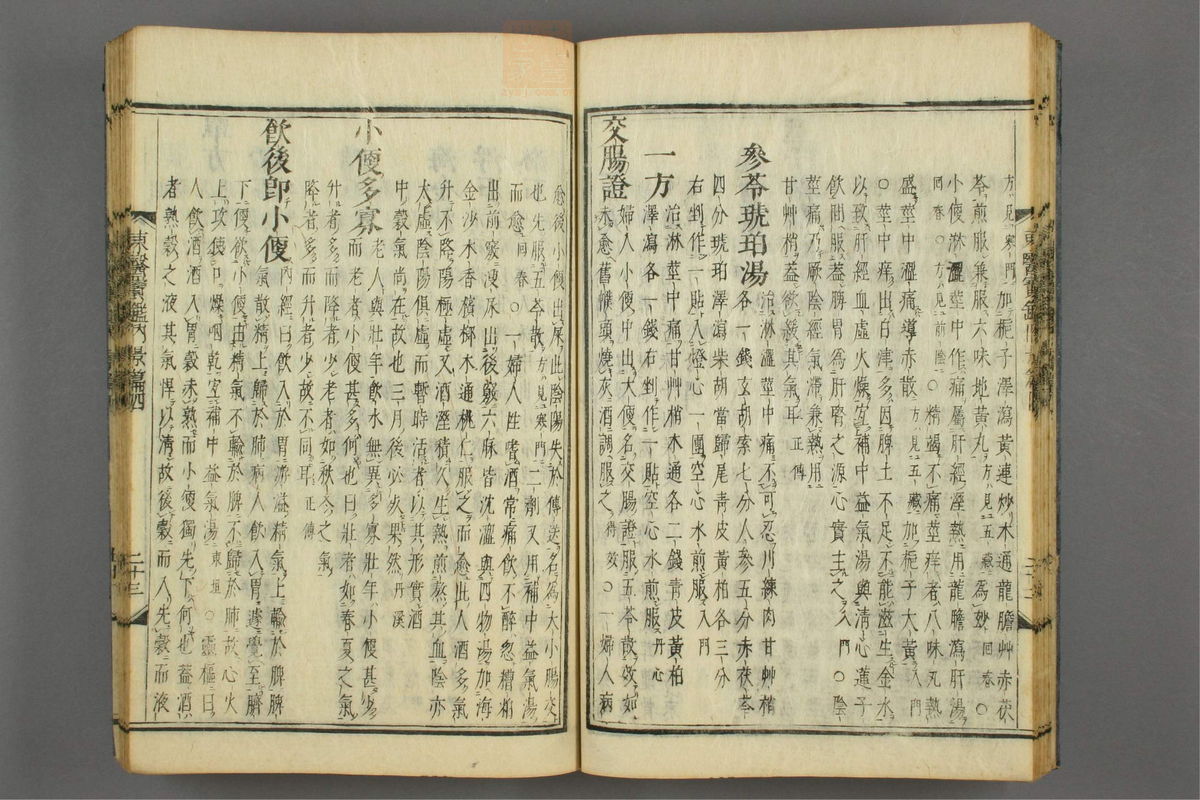 方見寒門加梔子澤瀉黃連炒木通龍膽艸赤茯
苓煎服兼服六味地黃丸方見五藏為妙回春○
小便淋澀莖中作痛屬肝經溼熱用龍膽瀉肝湯
回春方見前陰○精竭不痛莖痒者八味丸熱
盛莖中澀痛導赤散方見五藏加梔子大黃入門
○莖中痒出白津多因脾土不足不能滋生金水
以致肝經血虛火燥宜補中益氣湯與清心蓮子
飲間服蓋脾胃為肝腎之源心實主之入門○陰
莖痛乃厥陰經氣滯兼熱用
甘艸梢蓋欲緩其氣耳正傳
參苓琥珀湯治淋澀莖中痛不可忍川練肉甘艸梢
各一錢玄胡索七分人參五分赤茯苓
四分琥珀澤瀉柴胡當歸尾青皮黃柏各三分
右剉作一貼入燈心一團空心水煎服入門
一方治淋莖中痛甘艸梢木通各二錢青皮黃柏
澤瀉各一錢右剉作一貼空心水煎服丹心
交腸證婦人小便中出大便名交腸證服五苓散效如
未愈舊幞頭燒灰酒調服之得效○一婦人病
愈後小便出屎此陰陽失於傳送名為大小腸交
也先服五苓散方見寒門二劑又用補中益氣湯
而愈回春○一婦人性嗜酒常痛飲不醉忽糟粕
出前竅溲尿出後竅六脉皆沈澀與四物湯加海
金沙木香檳榔木通桃仁服之而愈此人酒多氣
升不降陽極虛又酒溼積久生熱煎熬其血陰亦
大虛陰陽俱虛而暫時活者以其形實酒
中穀氣尚在故也三月後必死果然丹溪
小便多寡老人與壯年飮水無異多寡壯年小便甚少
而老者小便甚多何也曰壯者如春夏之氣
升者多而降者少老者如秋冬之氣
降者多而升者少故不同耳正傳
飮後即小便內經曰飮入於胃游溢精氣上輸於脾脾
氣散精上歸於肺病人飮入胃遽覺至臍
下便欲小便由精氣不輸於脾不歸於肺故心火
上攻使口燥咽乾宜補中益氣湯東垣○靈樞曰
人飮酒酒入胃穀未熟而小便獨先下何也蓋酒
者熟穀之液其氣悍以清故後穀而入先穀而液
東醫寶鑑內景篇四
二十三